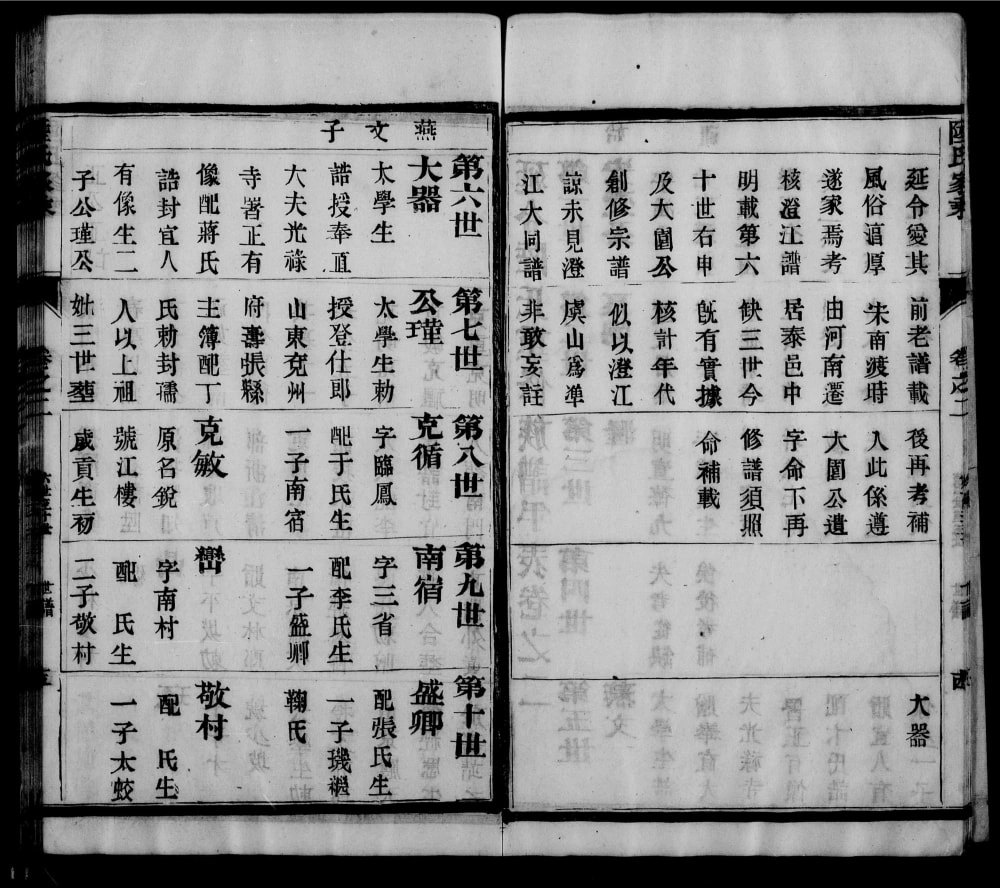 陸氏家乘
延令愛其
風俗湻厚
遂家焉考
核澄江譜
明載第六
十世右申
及大圜公
創修宗譜
諒未見澄
江大同譜
前老譜載
宋南渡時
由河南遷
居泰邑中
缺三世今
旣有實據
核計年代
似以澄江
虞山爲準
非敢妄註
後再考補
入此係遵
大圜公遺
字命不再
修譜須照
命補載
大器
卷之二
燕文子
第六世
大器
太學生
誥授奉直
大夫光祿
寺署正有
像配蔣氏
誥封宜人
有像生二
子公瑾公
第七世
公瑾
太學生勅
授登仕郎
山東兗州
府壽張縣
主簿配丁
氏勅封孺
人以上祖
妣三世塟
第八世
克循
字臨鳳
配于氏生
一子南宿
克敏
原名銳
號江樓
歲貢生初
第九世
南宿
字三省
配李氏生
一子盛卿
巒
字南村
配 氏生
二子敬村
第十世
盛卿
配張氏生
一子璣繼
鞠氏
敬村
配 氏生
一子太蛟
世譜
五